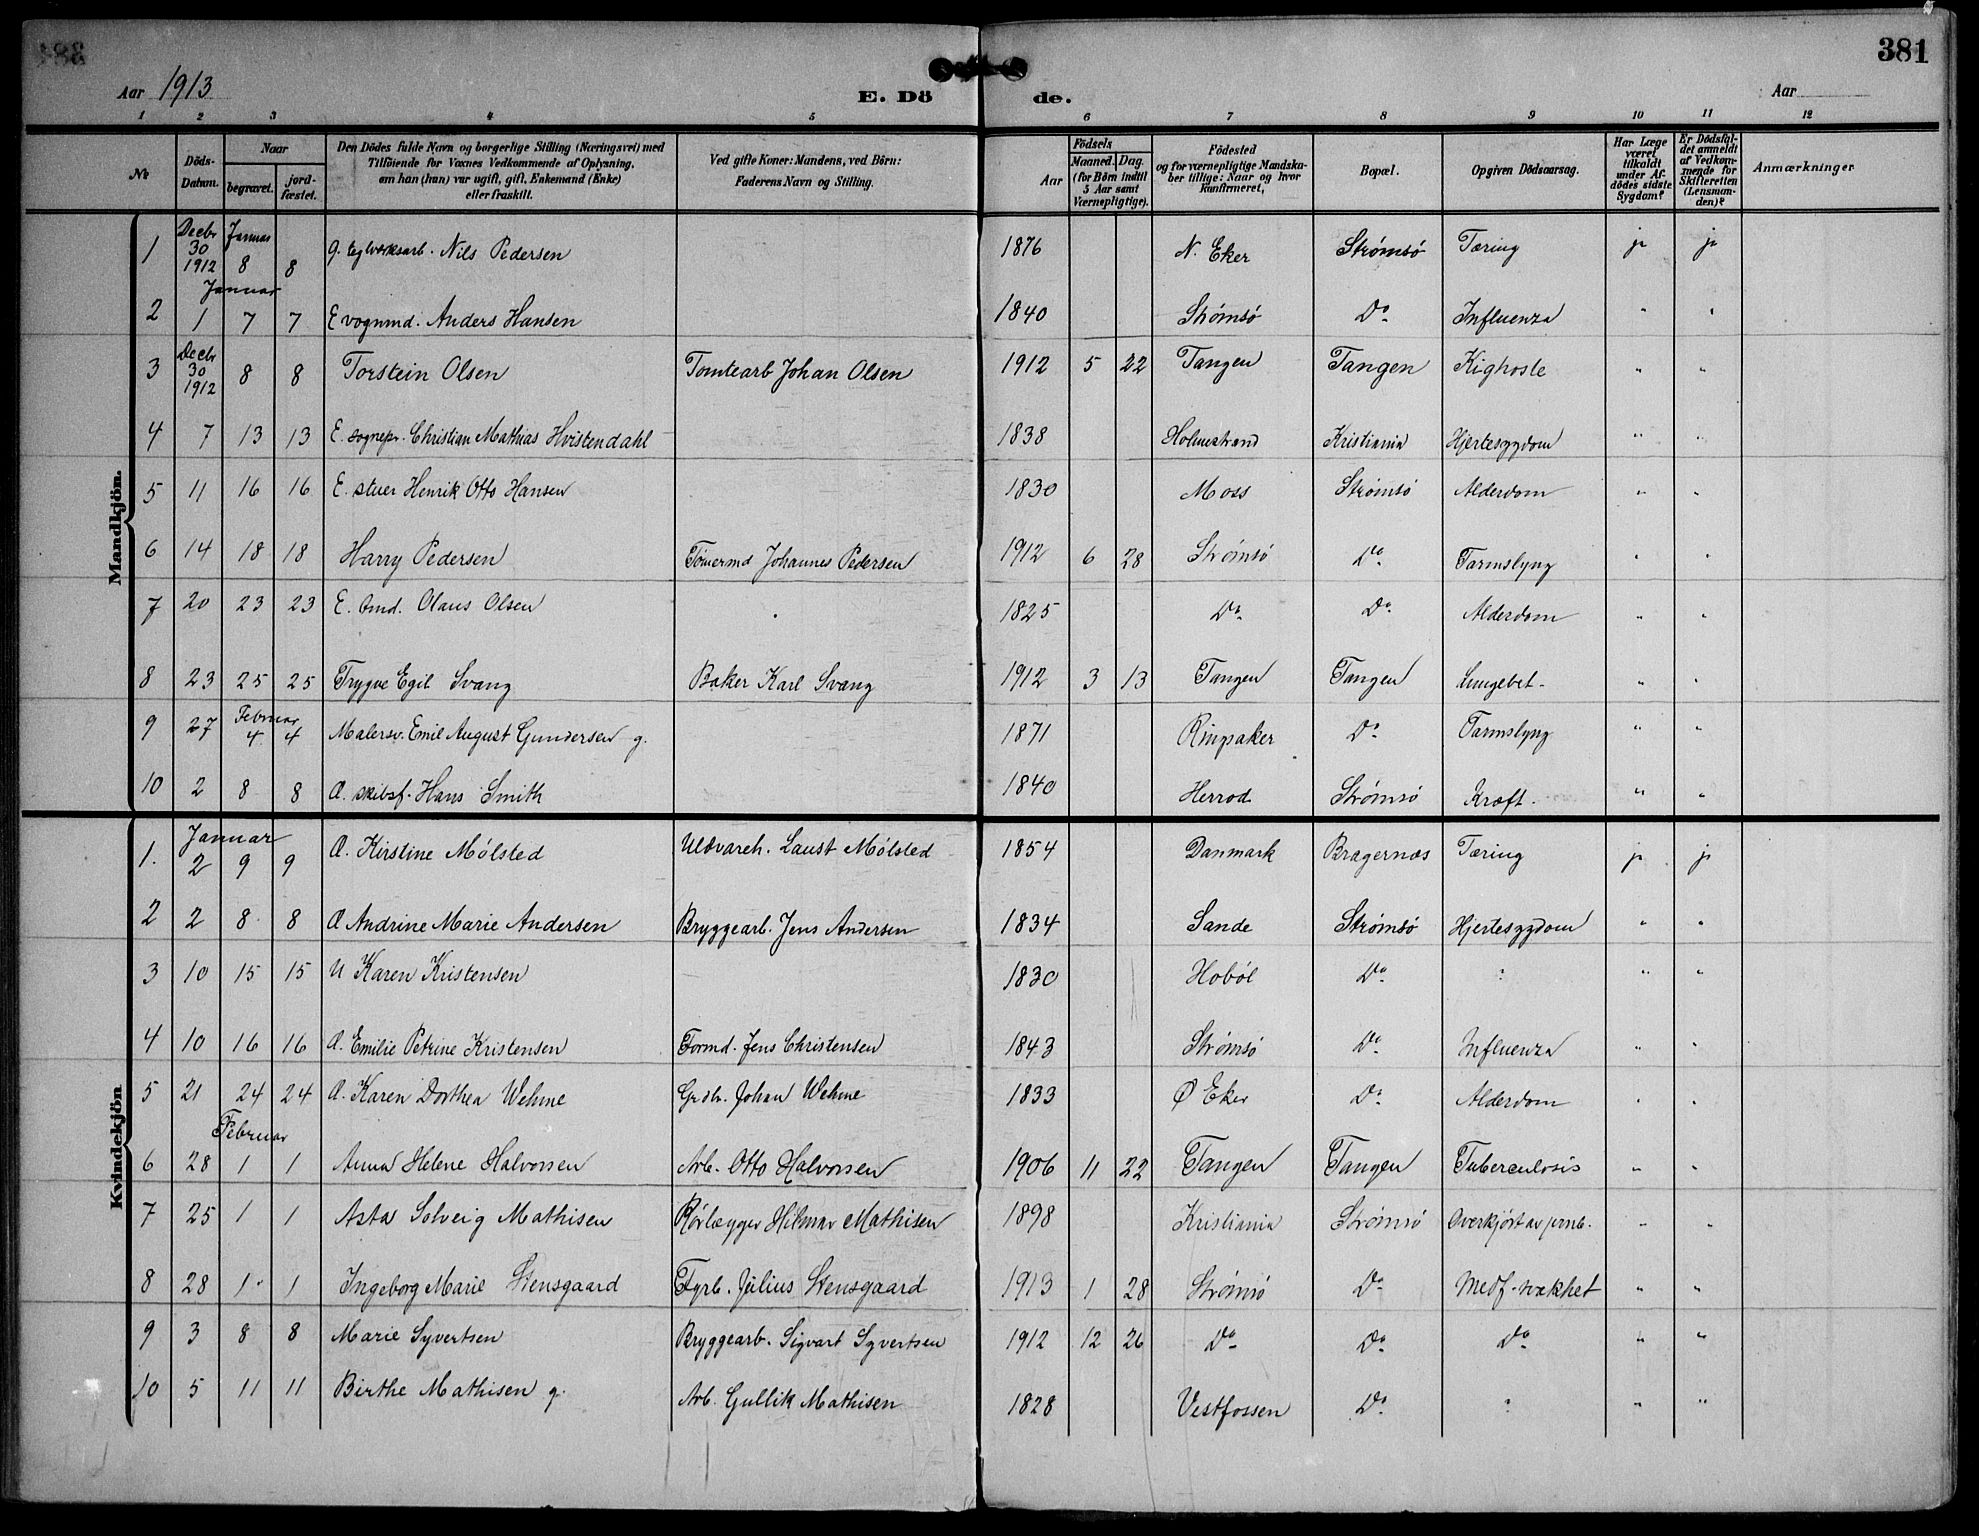 381
Aar 1913
E. Dö de.
Aar
1 2 3 4 5 6 7 8 9 10 11 12
No
Döds-Datum.
Naar
begravet.
jord-fæstet.
Den Dödes fulde Navn og borgerlige Stilling (Næringsvei) med
Tilföiende for Voxnes Vedkommende af Oplysning,
om han (hun) var ugift, gift, Enkemand (Enke)
eller fraskilt.
Ved gifte Koner: Mandens, ved Börn:
Faderens Navn og Stilling.
Födsels
Aar
Maaned. Dag.
(for Börn indtil
5 Aar samt
Værnepligtige).
Födested
og for værnepligtige Mandska-
ber tillige: Naar og hvor
Konfirmeret,
Bopæl.
Opgiven Dödsaarsag.
Har Læge
været
tilkaldt
under Af-
dödes sidste
Sygdom?
Er Dödsfal-
det anmeldt
af Vedkom-
mende for
Skifteretten
(Lensman-
den)?
Anmærkninger
Mandkjön.
1 Decbr 30 1912 Januar 8 8 g. teglverksarb. Nils Pedersen 1876 N. Eker Strømsö Tæring ja ja
Januar
2 1 7 7 E vognmd. Anders Hansen 1840 Strømsö Do Influenza " "
3 Decbr 30 1912 8 8 Torstein Olsen Tomtearb Johan Olsen 1912 5 22 Tangen Tangen Kighoste " "
4 7 13 13 E. sognepr. Christian Mathias Hvistendahl 1838 Holmestrand Kristiania Hjertesygdom " "
5 11 16 16 E. stuer Henrik Otto Hansen 1830 Moss Strømsö Alderdom " "
6 14 18 18 Harry Pedersen Tömermd Johannes Pedersen 1912 6 28 Strømsö Do Tarmslyng " "
7 20 23 23 E. Olaus Olsen 1825 Do Do Alderdom " "
8 23 25 25 Trygve Egil Svang Baker Karl Svang 1912 3 13 Tangen Tangen Lungebet. " "
Februar
9 27 4 4 Malersv. Emil August Gundersen g. 1871 Ringsaker Do Tarmslyng " "
10 2 8 8 Æ. skibsf. Hans Smith 1840 Herrod Strømsö Kræft. " "
Kvindekjön
Januar
1. 2 9 9 Æ. Kirstine Mölsted Uldvareh. Laust Mölsted 1854 Danmark Bragernæs Tæring ja ja
2 2 8 8 Æ Andrine Marie Andersen Bryggearb. Jens Andersen 1834 Sande Strømsö Hjertesygdom " "
3 10 15 15 U Karen Kristensen 1830 Hoböl Do " " "
4 10 16 16 Æ. Emilie Petrine Kristensen Formd. Jens Christensen 1843 Strømsö Do Influenza " "
5 21 24 24 Æ. Karen Dorthea Wehme Grdbr. Johan Wehme 1833 Ø Eker Do Alderdom " "
Februar
6 28 1 1 Anna Helene Halvorsen Arb. Otto Halvorsen 1906 11 22 Tangen Tangen Tuberculosis " "
7 25 1 1 Asta Solveig Mathisen Rørlægger Hilmar Mathisen 1898 Kristiania Strømsö Overkjört av jernb. " "
8 28 1 1 Ingeborg Marie Stensgaard Fyrb. Julius Stensgaard 1913 1 28 Strømsö Do Medf. svækhet " "
9 3 8 8 Marie Syvertsen Bryggearb. Sigvart Syvertsen 1912 12 26 Do Do Do " "
10 5 11 11 Birthe Mathisen g. Arb. Gullik Mathisen 1828 Vestfossen Do " " "